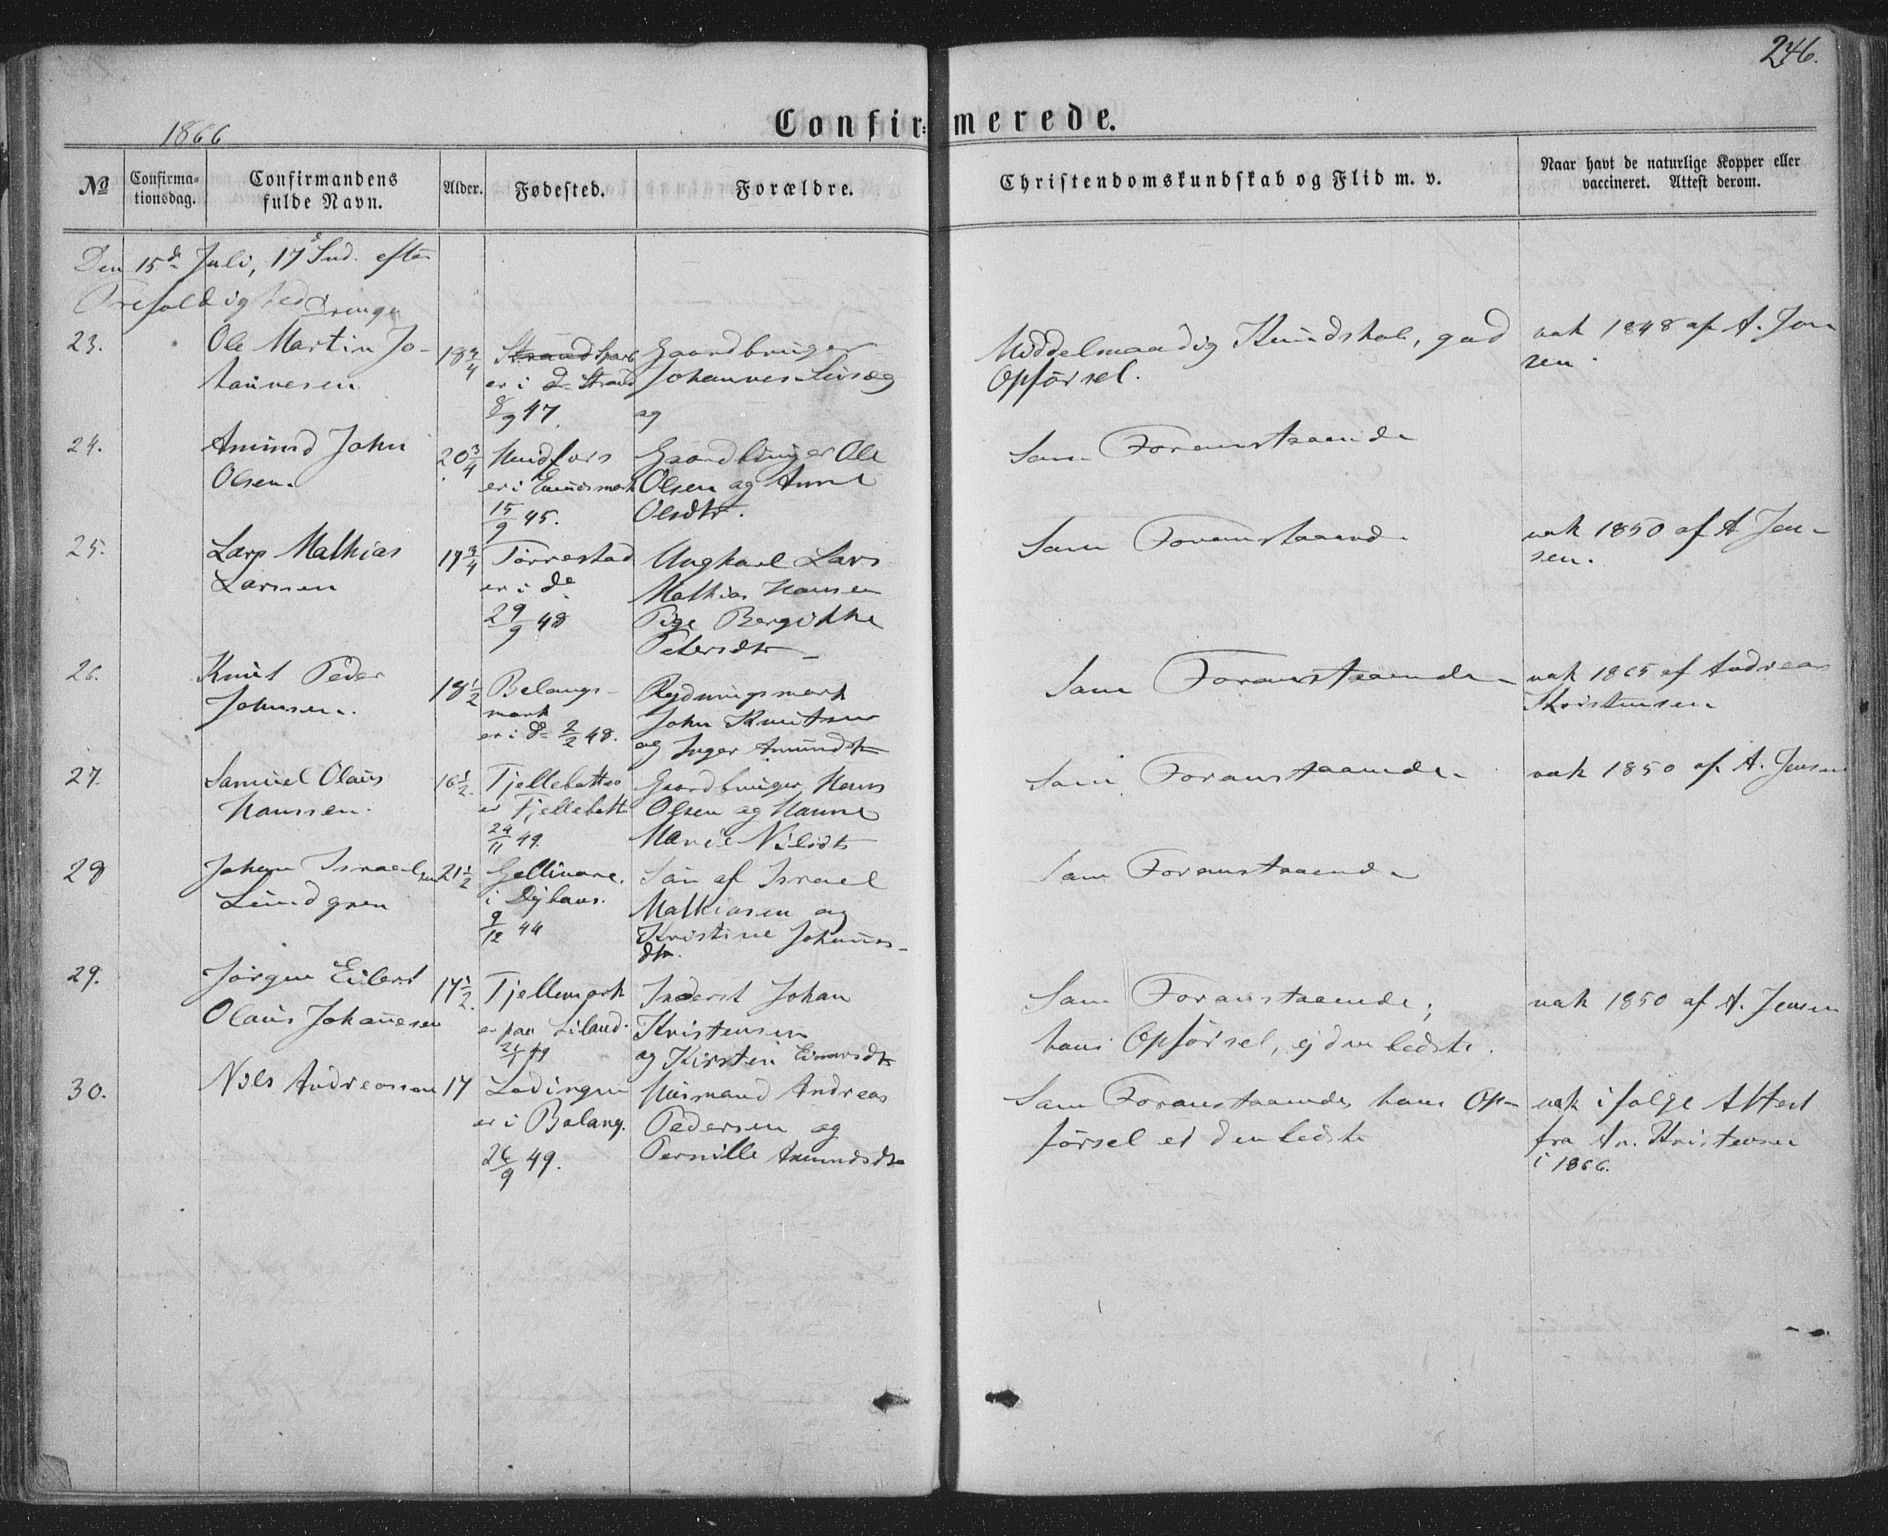 246.
1866
Confir=merede.
No
Confirma=
tionsdag.
Confirmandens
fulde Navn.
Alder.
Fødested.
Forældre.
Christendomskundskab og Flid m. v.
Naar havt de naturlige Kopper eller
vaccineret. Attest derom.
Den 15de Juli, 17d Snd. efter
Trefoldighed Drenge
23.
Ole Martin Jo-
hannesen
18 3/4
er i d. Strand
8/9 47.
Gaardbruger
Johannes
og
Middelmaadig Kundskab, god
Opførsel.
vak 1848 af A. Jen
sen.
24.
Amund John
Olsen.
20 3/4
er i
15/9 45.
Gaardbruger Ole
Olsen og Anne
Olsdtr.
Som Foranstaaende
25.
Lars Mathias
Larsen
17 3/4
Tørrestad
er i de
29/9 48
Ungkarl Lars
Mathias Hansen
Pige Bergitthe
Petersdtr
Som Foranstaaend.
vak 1850 af A Jen-
sen.
26.
Knut Peder
Johnsen.
18 1/2
Balangs-
mark
er i d 2/2 48.
Rydningsmark
John Knutsen
og Inger Amundsdtr
Som Foranstaaende
vak 1865 af Andreas
Kristensen
27.
Samuel Olaus
Hanssen.
16 1/2.
Tjellebotten
er Tjellebotten
24/11 49.
Gaardbruger Hans
Olsen og Hanne
Marie Nilsdtr
Som Foranstaaende
vak 1850 af A. Jensen
28
Johan Israelsen
Lundgren
21 1/2
Gellivare.
i
9/12 44
Søn af Israel
Mathiasen og
Kristine Johannes-
dtr.
Som Foranstaaende
29.
Jørgen Eilert
Olaus Johannesen
17 1/2.
Tjellemark
er paa Liland.
49
Inderst Johan
Kristensen
og Kirsten Einarsdtr
Som Foranstaaende;
hans Opførsel, ej den bedste.
vak 1850 af A. Jensen
30.
Nils Andreassen
17
Lødingen
er i Balang.
26/9 49.
Husmand Andreas
Pedersen og
Pernille Amundsdtr
Som Foranstaaende, hans Op-
førsel ei den bedste
vak ifølge Attest
fra An. Kristensen
i 1866.